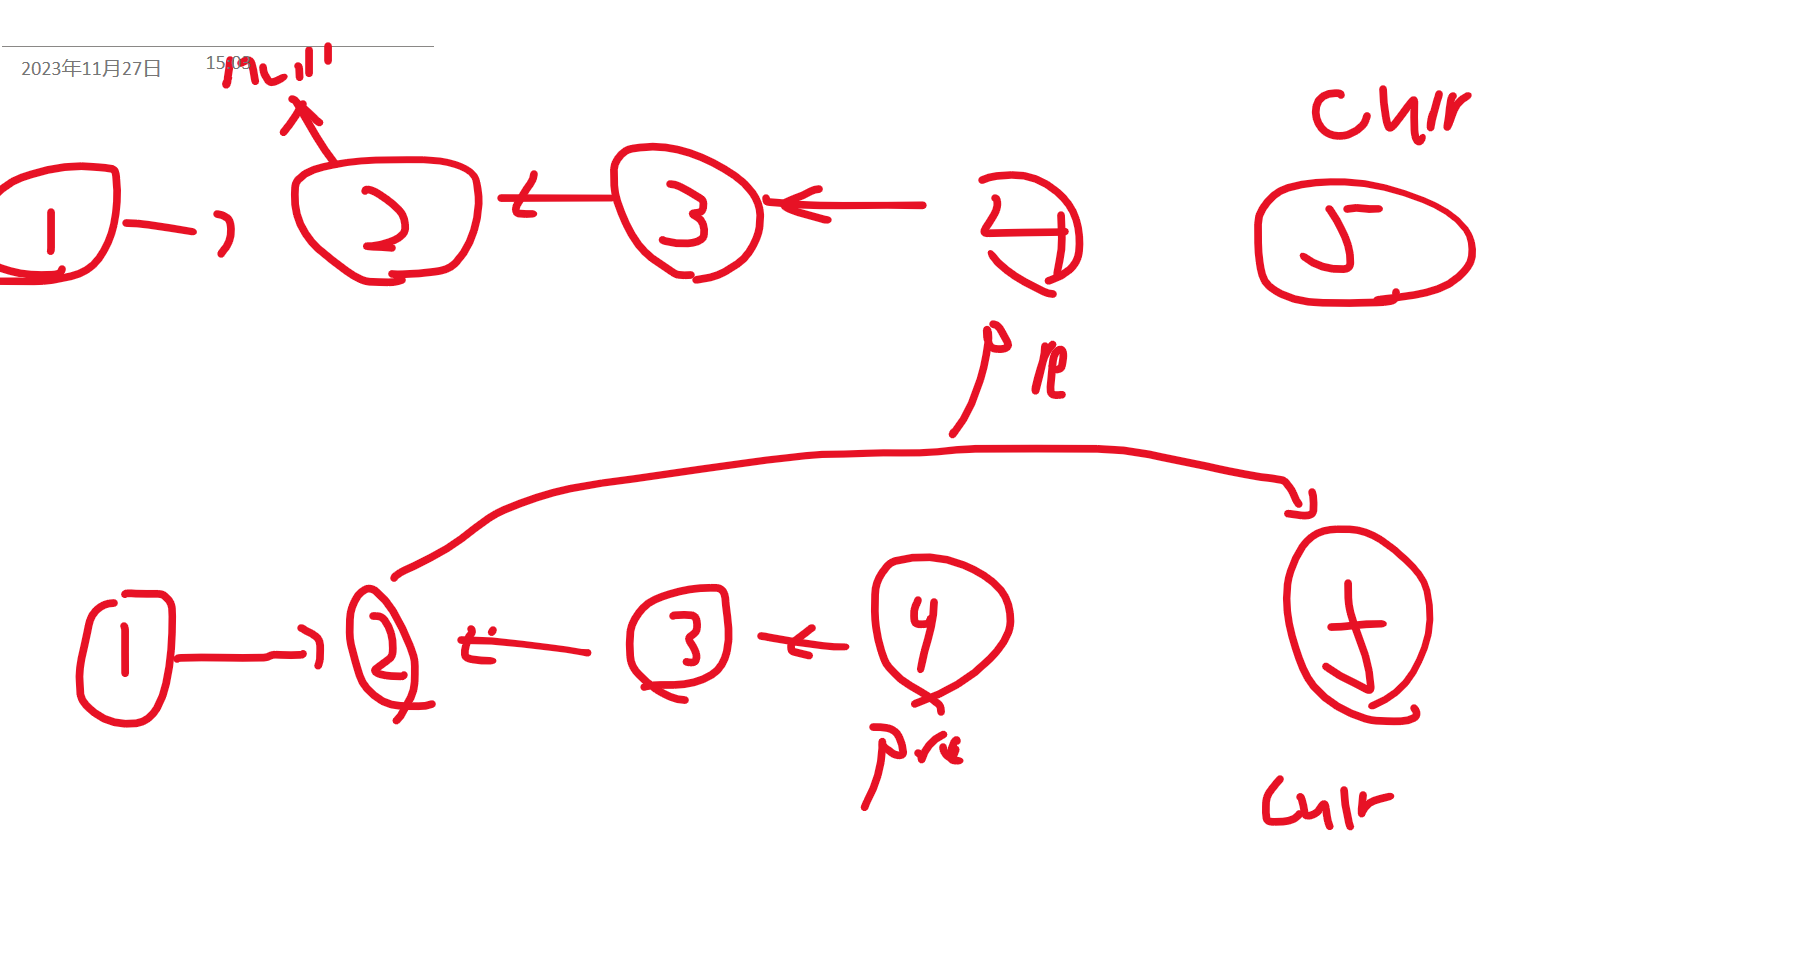 2023年11月27日 15:03
null
curr
1 2 3 4 5
pre
1 2 3 4
pre
curr